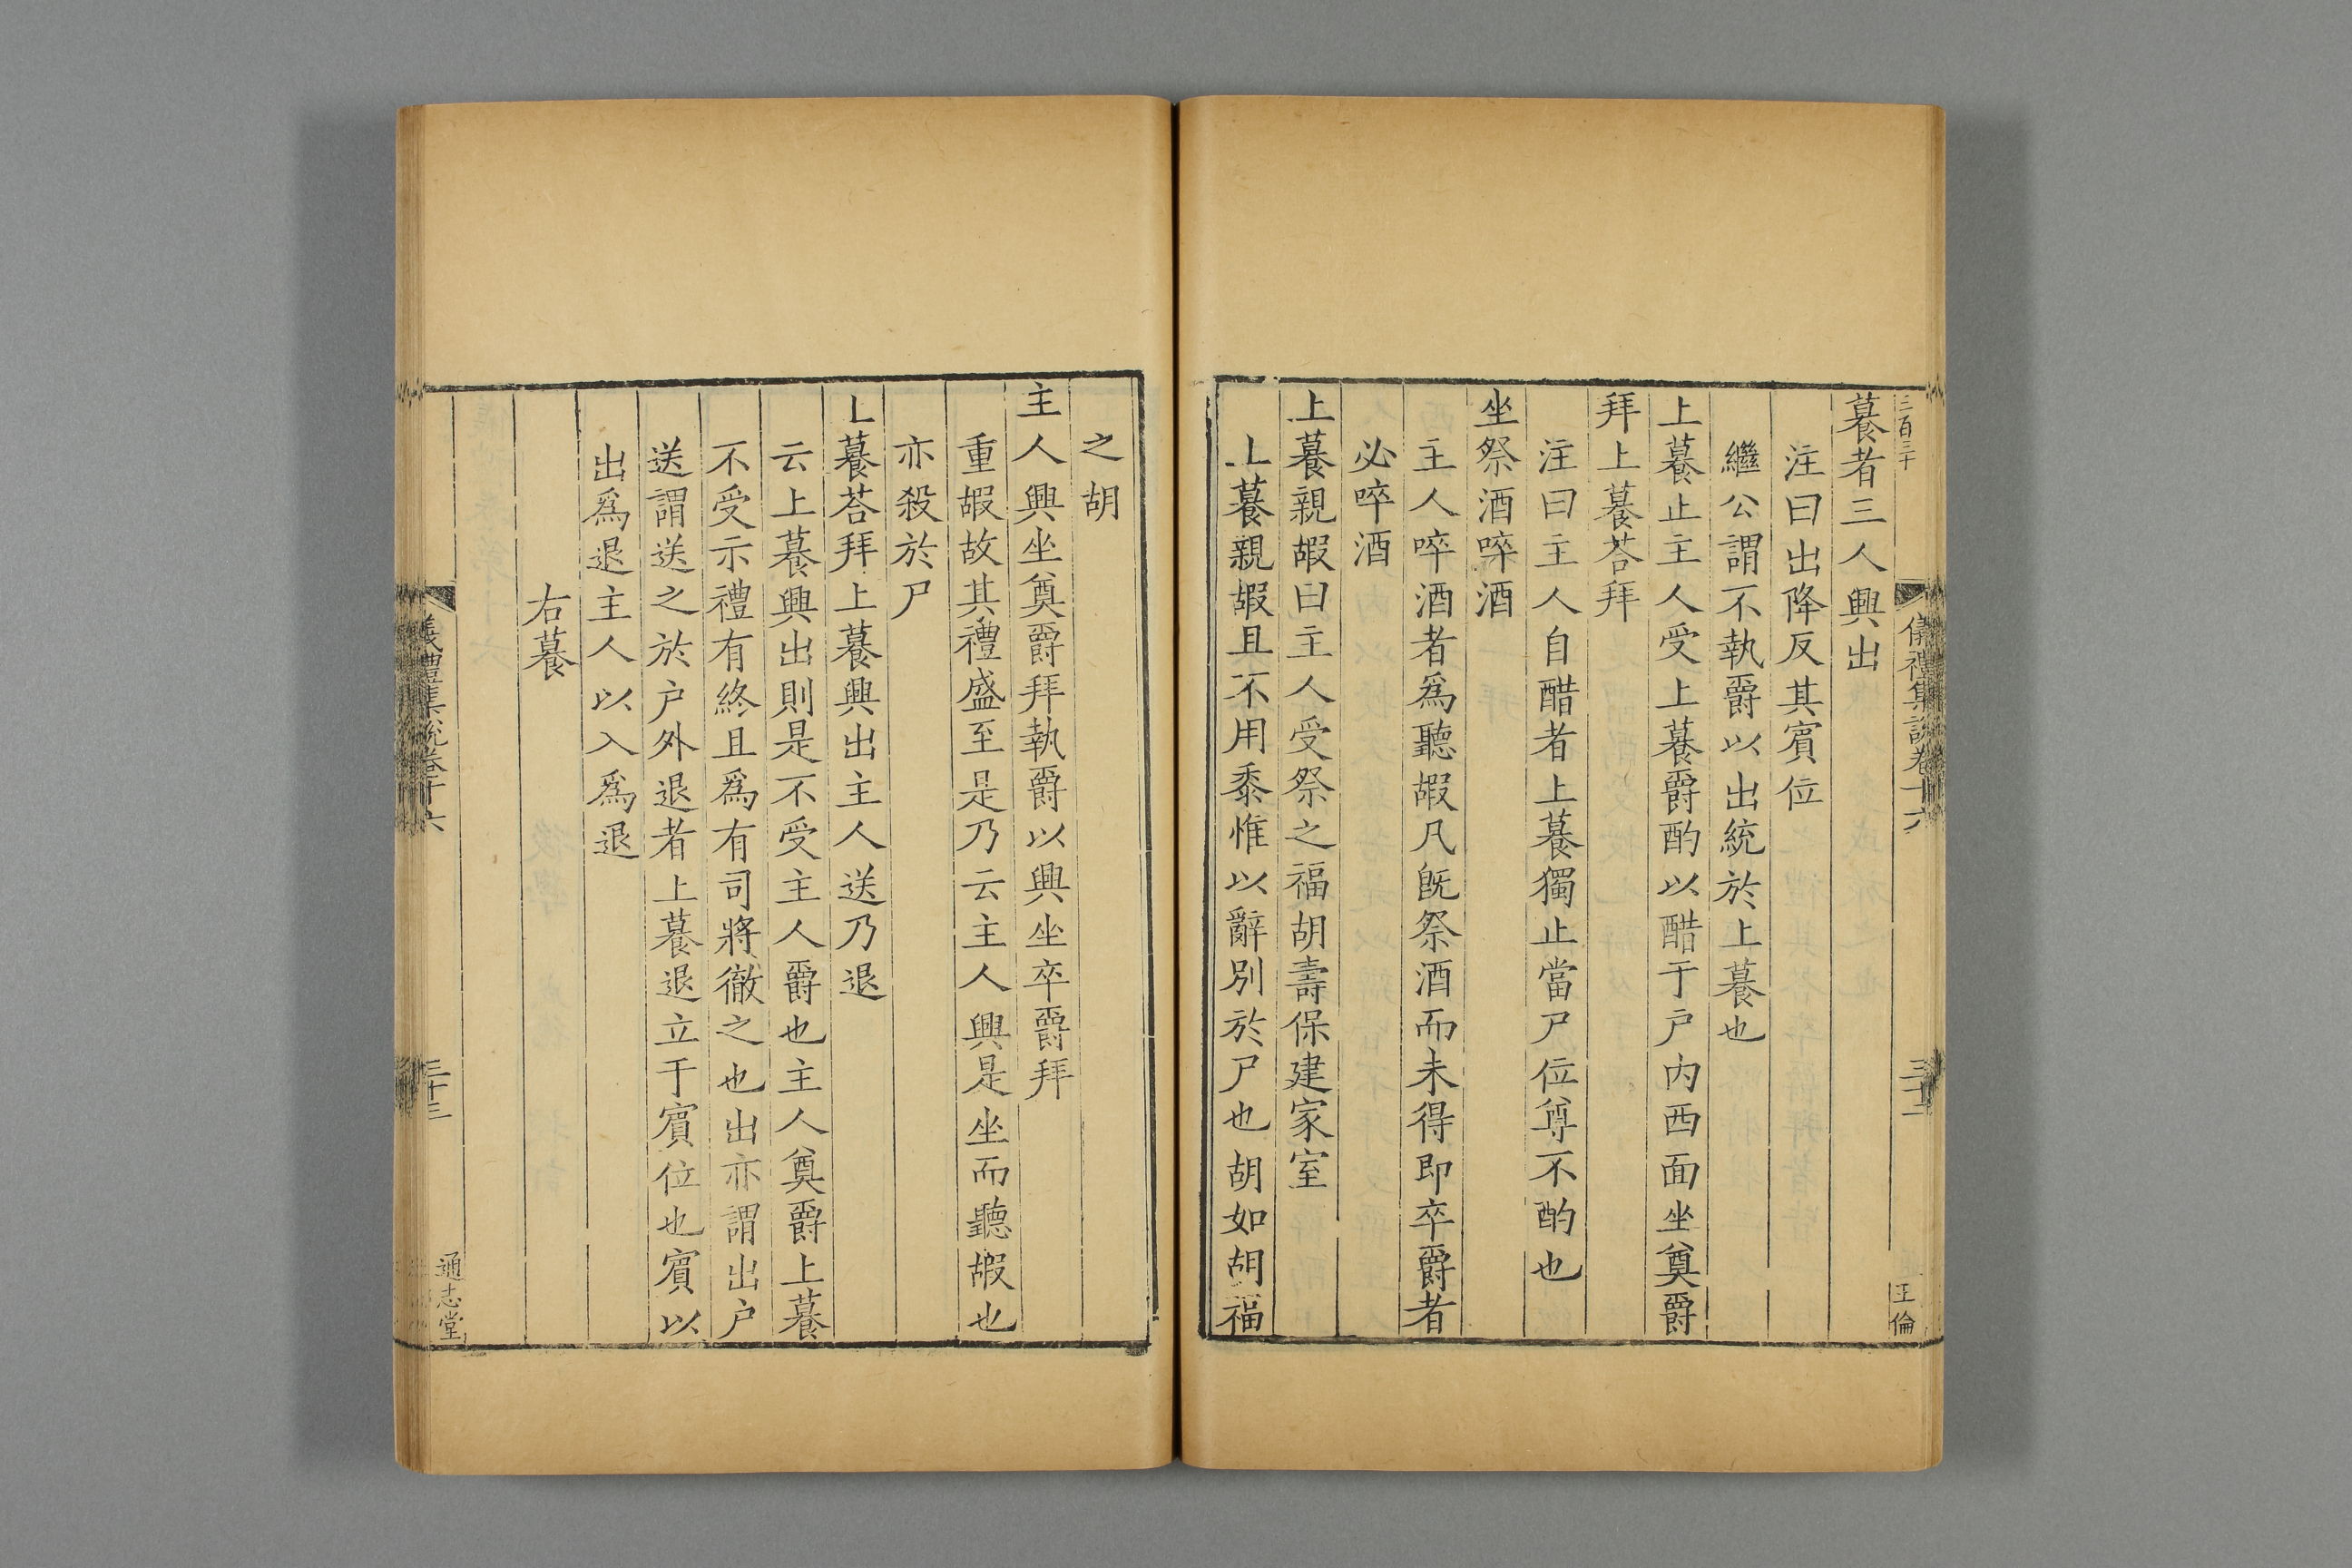 三百三十
儀禮集說卷十六
王倫
䭕者三人興出
注曰出降反其賔位
繼公謂不執爵以出統於上䭕也
上䭕止主人受上䭕爵酌以酷于户内西面坐奠爵
拜上䭕荅拜
注曰主人自醋者上䭕獨止當尸位尊不酌也
坐祭酒啐酒
主人啐酒者爲聽嘏凡旣祭酒而未得即卒爵者
必啐酒
上䭕親嘏曰主人受祭之福胡壽保建家室
上䭕親嘏且不用黍惟以辭别於尸也胡如胡福
之胡
主人興坐奠爵拜執爵以興坐卒爵拜
重嘏故其禮盛至是乃云主人興是坐而聽嘏也
亦殺於尸
上䭕荅拜上䭕興出主人送乃退
云上䭕興出則是不受主人爵也主人奠爵上䭕
不受示禮有終且爲有司將徹之也出亦謂出户
送謂送之於户外退者上䭕退立于賔位也賔以
出爲退主人以入爲退
右䭕
儀禮集說卷十六
三十三
通志堂